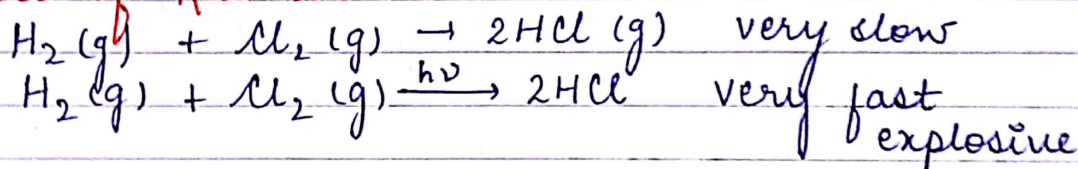 H₂ (g) + Cl₂ (g) → 2HCl (g) very slow
H₂ (g) + Cl₂ (g) —hν→ 2HCl very fast
explosive